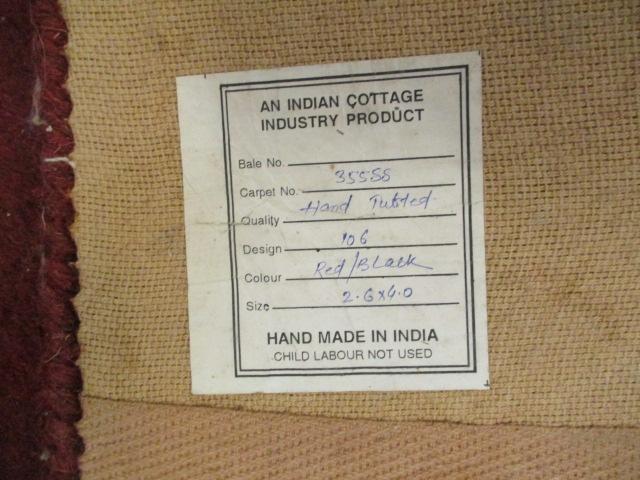 AN INDIAN COTTAGE
INDUSTRY PRODUCT
Bale No.
Carpet No. 35588
Quality Hand Tufted
Design 106
Colour Red/Black
Size 2.6x4.0
HAND MADE IN INDIA
CHILD LABOUR NOT USED